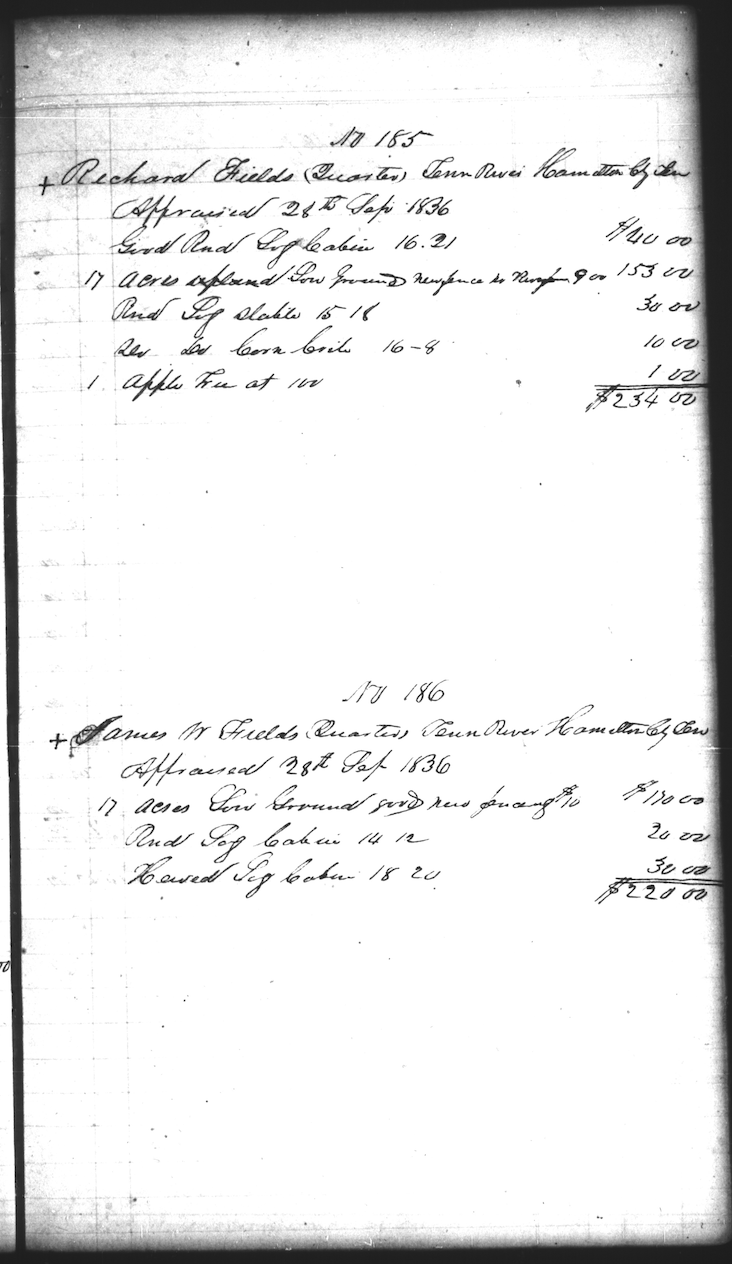 No 185
+ Richard Fields (Quarter) Tenn River Hamilton Cty Ten
Appraised 28th Sep 1836
Good Rnd Log Cabin 16.21 $40 00
17 acres upland Low ground new fence 9 00 153 00
Rnd Log Stable 15 18 30 00
Do Do Corn Crib 16-8 10 00
1 Apple Tree at 100 1 00
$234 00
No 186
+ James W Fields (Quarter) Tenn River Hamilton Cty Ten
Appraised 28th Sep 1836
17 acres Low Ground good new fencing $10 $170 00
Rnd Log Cabin 14 12 20 00
Hewed Log Cabin 18 20 30 00
$220 00